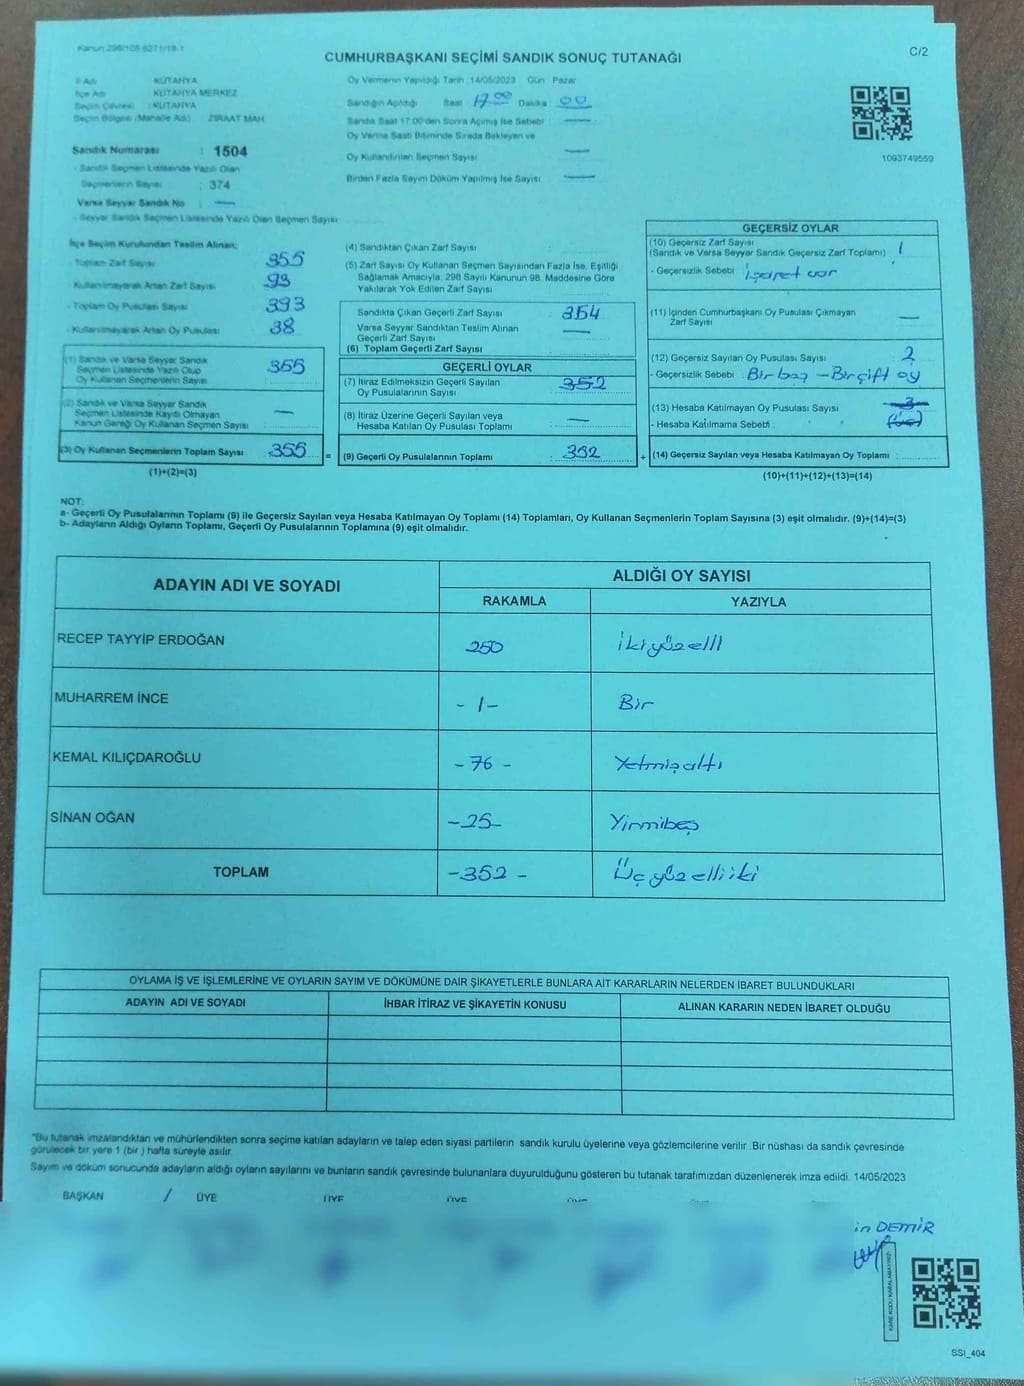 Kanun 298/105 6271/18-1
C/2
CUMHURBAŞKANI SEÇİMİ SANDIK SONUÇ TUTANAĞI
İl Adı : KÜTAHYA
İlçe Adı : KÜTAHYA MERKEZ
Seçim Çevresi : KÜTAHYA
Seçim Bölgesi (Mahalle Adı) : ZİRAAT MAH.
Sandık Numarası : 1504
- Sandık Seçmen Listesinde Yazılı Olan
Seçmenlerin Sayısı : 374
Varsa Seyyar Sandık No : —
- Seyyar Sandık Seçmen Listesinde Yazılı Olan Seçmen Sayısı
Oy Vermenin Yapıldığı Tarih 14/05/2023 Gün Pazar
Sandığın Açıldığı Saat 17 00 Dakika 00
Sandık Saat 17.00'den Sonra Açılmış İse Sebebi —
Oy Verme Saati Bitiminde Sırada Bekleyen ve
Oy Kullandırılan Seçmen Sayısı —
Birden Fazla Sayım Döküm Yapılmış İse Sayısı —
1093749559
İlçe Seçim Kurulundan Teslim Alınan;
Toplam Zarf Sayısı : 355
Kullanılmayarak Artan Zarf Sayısı : 93
- Toplam Oy Pusulası Sayısı : 393
- Kullanılmayarak Artan Oy Pusulası : 38
(1) Sandık ve Varsa Seyyar Sandık
Seçmen Listesinde Yazılı Olup
Oy Kullanan Seçmenlerin Sayısı : 355
(2) Sandık ve Varsa Seyyar Sandık
Seçmen Listesinde Kayıtlı Olmayan
Kanun Gereği Oy Kullanan Seçmen Sayısı : —
(3) Oy Kullanan Seçmenlerin Toplam Sayısı : 355 =
(1)+(2)=(3)
(4) Sandıktan Çıkan Zarf Sayısı :
(5) Zarf Sayısı Oy Kullanan Seçmen Sayısından Fazla İse, Eşitliği
Sağlamak Amacıyla, 298 Sayılı Kanunun 98. Maddesine Göre
Yakılarak Yok Edilen Zarf Sayısı :
Sandıkta Çıkan Geçerli Zarf Sayısı : 354
Varsa Seyyar Sandıktan Teslim Alınan
Geçerli Zarf Sayısı : —
(6) Toplam Geçerli Zarf Sayısı :
GEÇERLİ OYLAR
(7) İtiraz Edilmeksizin Geçerli Sayılan
Oy Pusulalarının Sayısı : 352
(8) İtiraz Üzerine Geçerli Sayılan veya
Hesaba Katılan Oy Pusulaları Toplamı : —
(9) Geçerli Oy Pusulalarının Toplamı : 352 +
GEÇERSİZ OYLAR
(10) Geçersiz Zarf Sayısı
(Sandık ve Varsa Seyyar Sandık Geçersiz Zarf Toplamı) : 1
- Geçersizlik Sebebi : işaret var
(11) İçinden Cumhurbaşkanı Oy Pusulası Çıkmayan
Zarf Sayısı : —
(12) Geçersiz Sayılan Oy Pusulası Sayısı : 2
- Geçersizlik Sebebi : Bir boş - Bir çift oy
(13) Hesaba Katılmayan Oy Pusulası Sayısı : 3
- Hesaba Katılmama Sebebi :
(14) Geçersiz Sayılan veya Hesaba Katılmayan Oy Toplamı :
(10)+(11)+(12)+(13)=(14)
NOT:
a- Geçerli Oy Pusulalarının Toplamı (9) ile Geçersiz Sayılan veya Hesaba Katılmayan Oy Toplamı (14) Toplamları, Oy Kullanan Seçmenlerin Toplam Sayısına (3) eşit olmalıdır. (9)+(14)=(3)
b- Adayların Aldığı Oyların Toplamı, Geçerli Oy Pusulalarının Toplamına (9) eşit olmalıdır.
ADAYIN ADI VE SOYADI ALDIĞI OY SAYISI
RAKAMLA YAZIYLA
RECEP TAYYİP ERDOĞAN 250 İkiyüzelli
MUHARREM İNCE -1- Bir
KEMAL KILIÇDAROĞLU -76- Yetmişaltı
SİNAN OĞAN -25- Yirmibeş
TOPLAM -352- Üçyüzelliiki
OYLAMA İŞ VE İŞLEMLERİNE VE OYLARIN SAYIM VE DÖKÜMÜNE DAİR ŞİKAYETLERLE BUNLARA AİT KARARLARIN NELERDEN İBARET BULUNDUKLARI
ADAYIN ADI VE SOYADI İHBAR İTİRAZ VE ŞİKAYETİN KONUSU ALINAN KARARIN NEDEN İBARET OLDUĞU
*Bu tutanak imzalandıktan ve mühürlendikten sonra seçime katılan adayların ve talep eden siyasi partilerin sandık kurulu üyelerine veya gözlemcilerine verilir .Bir nüshası da sandık çevresinde
görülecek bir yere 1 (bir ) hafta süreyle asılır.
Sayım ve döküm sonucunda adayların aldığı oyların sayılarını ve bunların sandık çevresinde bulunanlara duyurulduğunu gösteren bu tutanak tarafımızdan düzenlenerek imza edildi. 14/05/2023
BAŞKAN / ÜYE ÜYE ÜYE
in DEMİR
KARE KODU KARALAMAYINIZ!
SSI_404